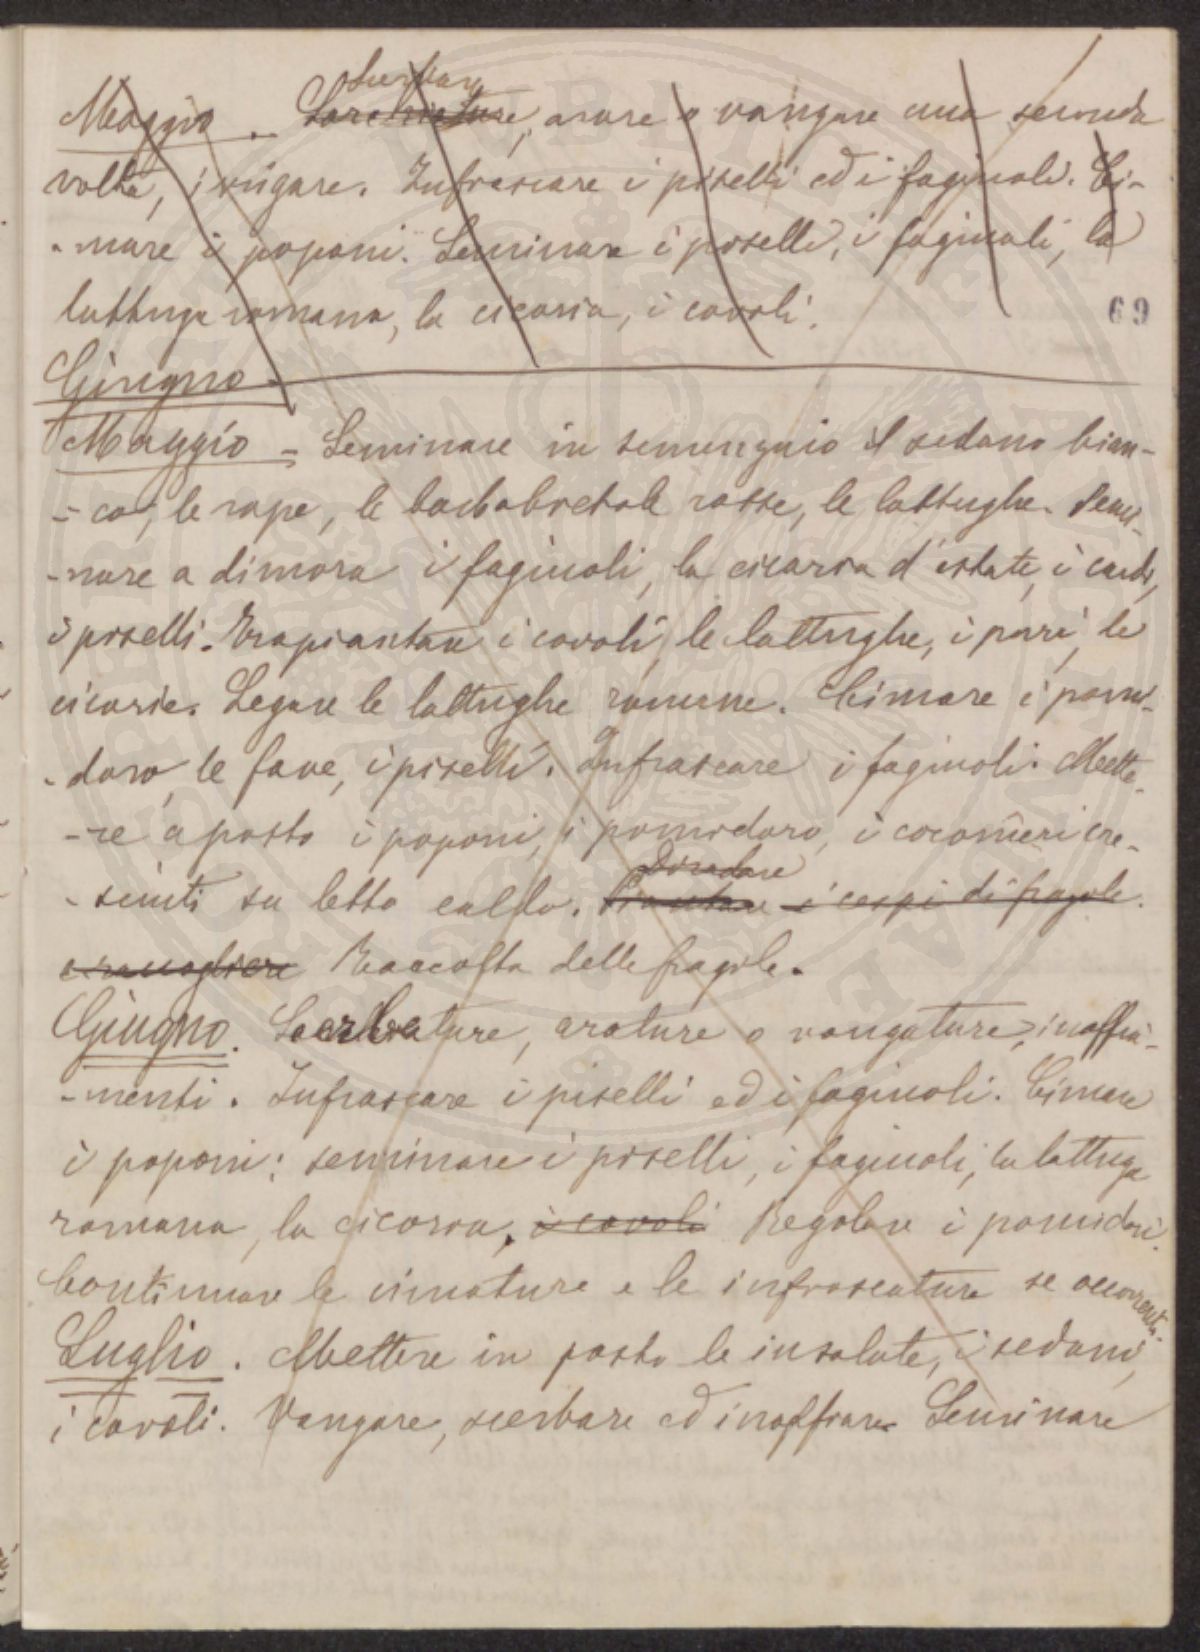 Scerbare
Maggio. Sarchiature, arare o vangare una seconda
volta, irrigare. Infrascare i piselli ed i faginoli. Ci-
-mare i poponi. Seminare i piselli, i faginoli, la
lattuga romana, la cicoria, i cavoli.
69
Giugno
Maggio - Seminare in semenzaio il sedano bian-
-co, le rape, le barbabietole rosse, le lattughe. Semi-
-nare a dimora i faginoli, la cicoria d'estate, i cardi,
i piselli. Trapiantare i cavoli, le lattughe, i porri, le
cicorie. Legare le lattughe romane. Cimare i pomi-
-doro, le fave, i piselli. Infrascare i faginoli. Mette-
-re a posto i poponi, i pomidoro, i cocomeri cre-
Diradare
-sciuti su letto caldo. Piantare i cespi di fragole.
Raccolta delle fragole.
Giugno. Scerbature, arature o vangature, inaffia-
-menti. Infrascare i piselli ed i faginoli. Cimare
i poponi; seminare i piselli, i faginoli, la lattuga
romana, la cicoria, i cavoli Regolare i pomidori.
Continuare le cimature e le infrascature se occorrenti.
Luglio. Mettere in posto le insalate, i sedani,
i cavoli. Vangare, scerbare ed inaffiare. Seminare